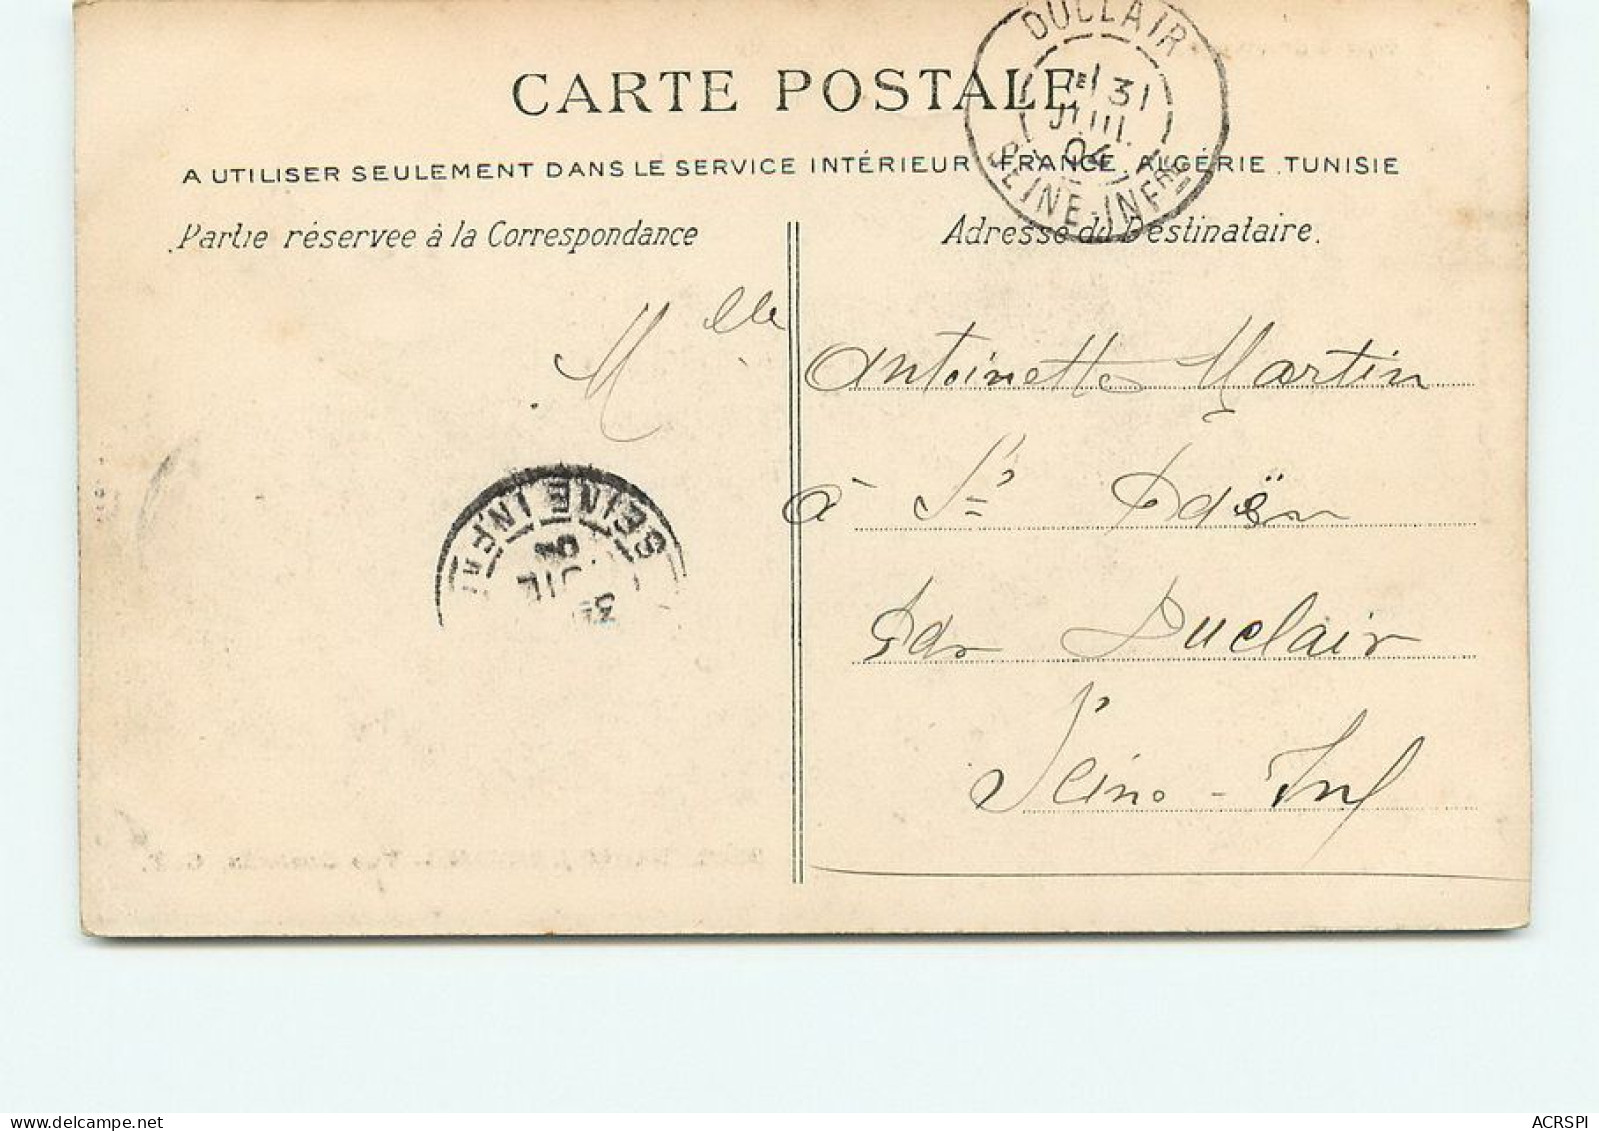 DUCLAIR
1E 31
JUIL
04
SEINE-INFRE
CARTE POSTALE
A UTILISER SEULEMENT DANS LE SERVICE INTÉRIEUR FRANCE, ALGÉRIE, TUNISIE
Partie réservée à la Correspondance
Adresse du Destinataire.
Melle
Antoinette Martin
à St Paër
Par Duclair
Seine-Inf
SEINE INFRE
delcampe.net
ACRSPI